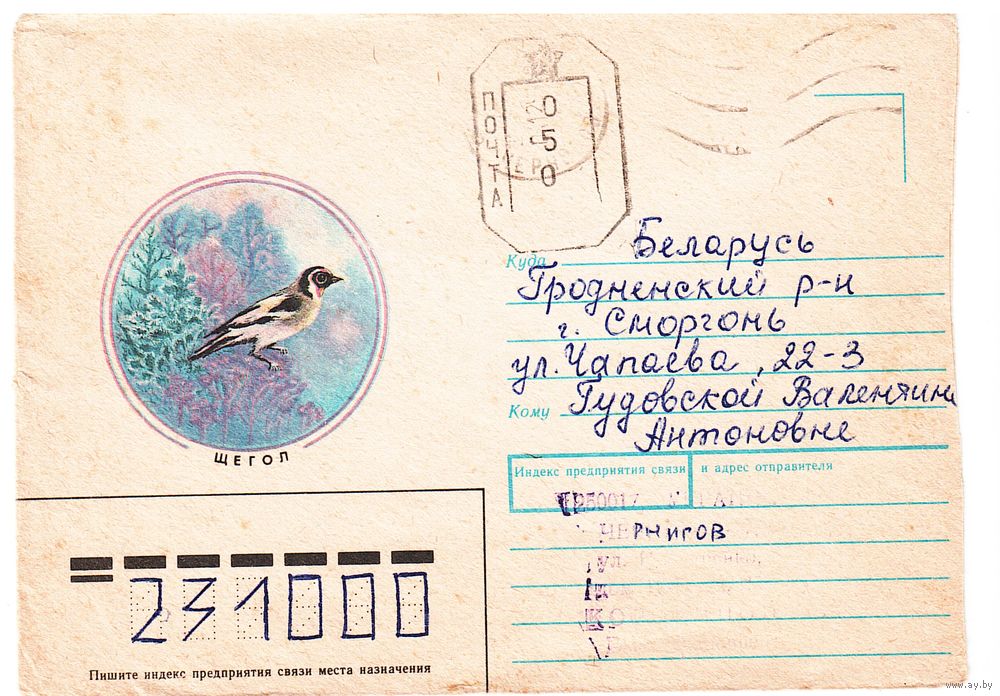 ПОЧТА
0
5
0
Куда Беларусь
Гродненский р-н
г. Сморгонь
ул. Чапаева, 22-3
Кому Гудовской Валентине
Антоновне
ЩЕГОЛ
Индекс предприятия связи и адрес отправителя
250017
ЧЕРНИГОВ
ул.
231000
Пишите индекс предприятия связи места назначения
www.ay.by